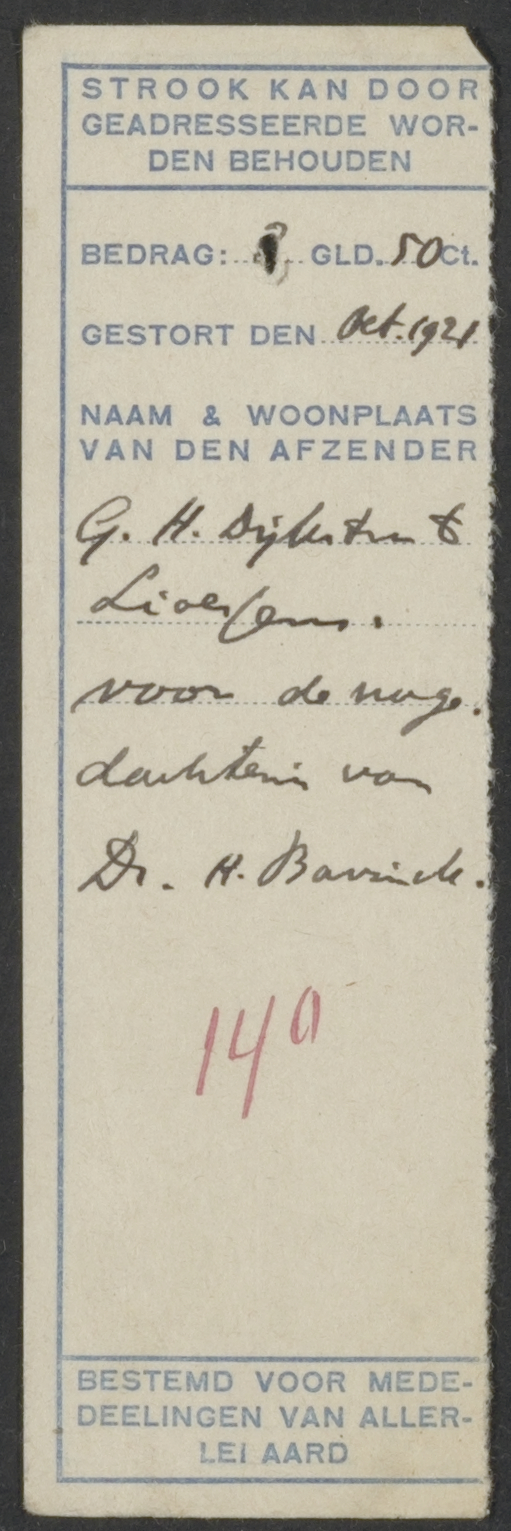 STROOK KAN DOOR
GEADRESSEERDE WOR-
DEN BEHOUDEN
BEDRAG: GLD. 50 Ct.
GESTORT DEN Oct. 1921
NAAM & WOONPLAATS
VAN DEN AFZENDER
G. H. Dijkstra te
Lioessens.
voor de nage.
dachtenis van
Dr. H. Bavinck.
14a
BESTEMD VOOR MEDE-
DEELINGEN VAN ALLER-
LEI AARD